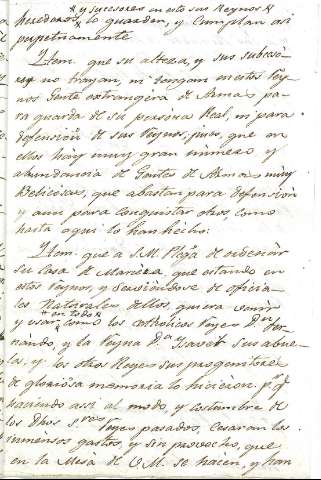 * y sucesores en esto sus Reynos *
herederos * lo guarden, y Cumplan asi
perpetuamente
Ytem. que su alteza, y sus subceso-
res no trayan, ni tengan en estos Rey-
nos Gente extrangera de Armas pa-
ra guarda de su persona Real, ni para
defension de sus Reynos; pues, que en
ellos hay muy gran número y
abundancia de Gentes de Armas muy
Belicosas, que abastan para defension
y aun para conquistar otros, como
hasta aqui lo han hecho.
Ytem. que a S.M. Plega de ordenar
su Casa de Manera, que estando en
estos Reynos, y serviendose de oficia-
les Naturales dellos, quiera venir
* en todo *
y usar, * como los catholicos Reyes Dn. Fer-
nando, y la Reyna D.ª Ysavel sus abue-
los, y los otros Reyes sus progenitores
de gloriosa memoria lo hicieron. p.r q.e
haciendo assi al modo, y costumbre de
los Dhos S.res Reyes pasados, Cesaran los
inmensos gastos, y sin provecho, que
en la Mesa de V.M. se hacen, y han